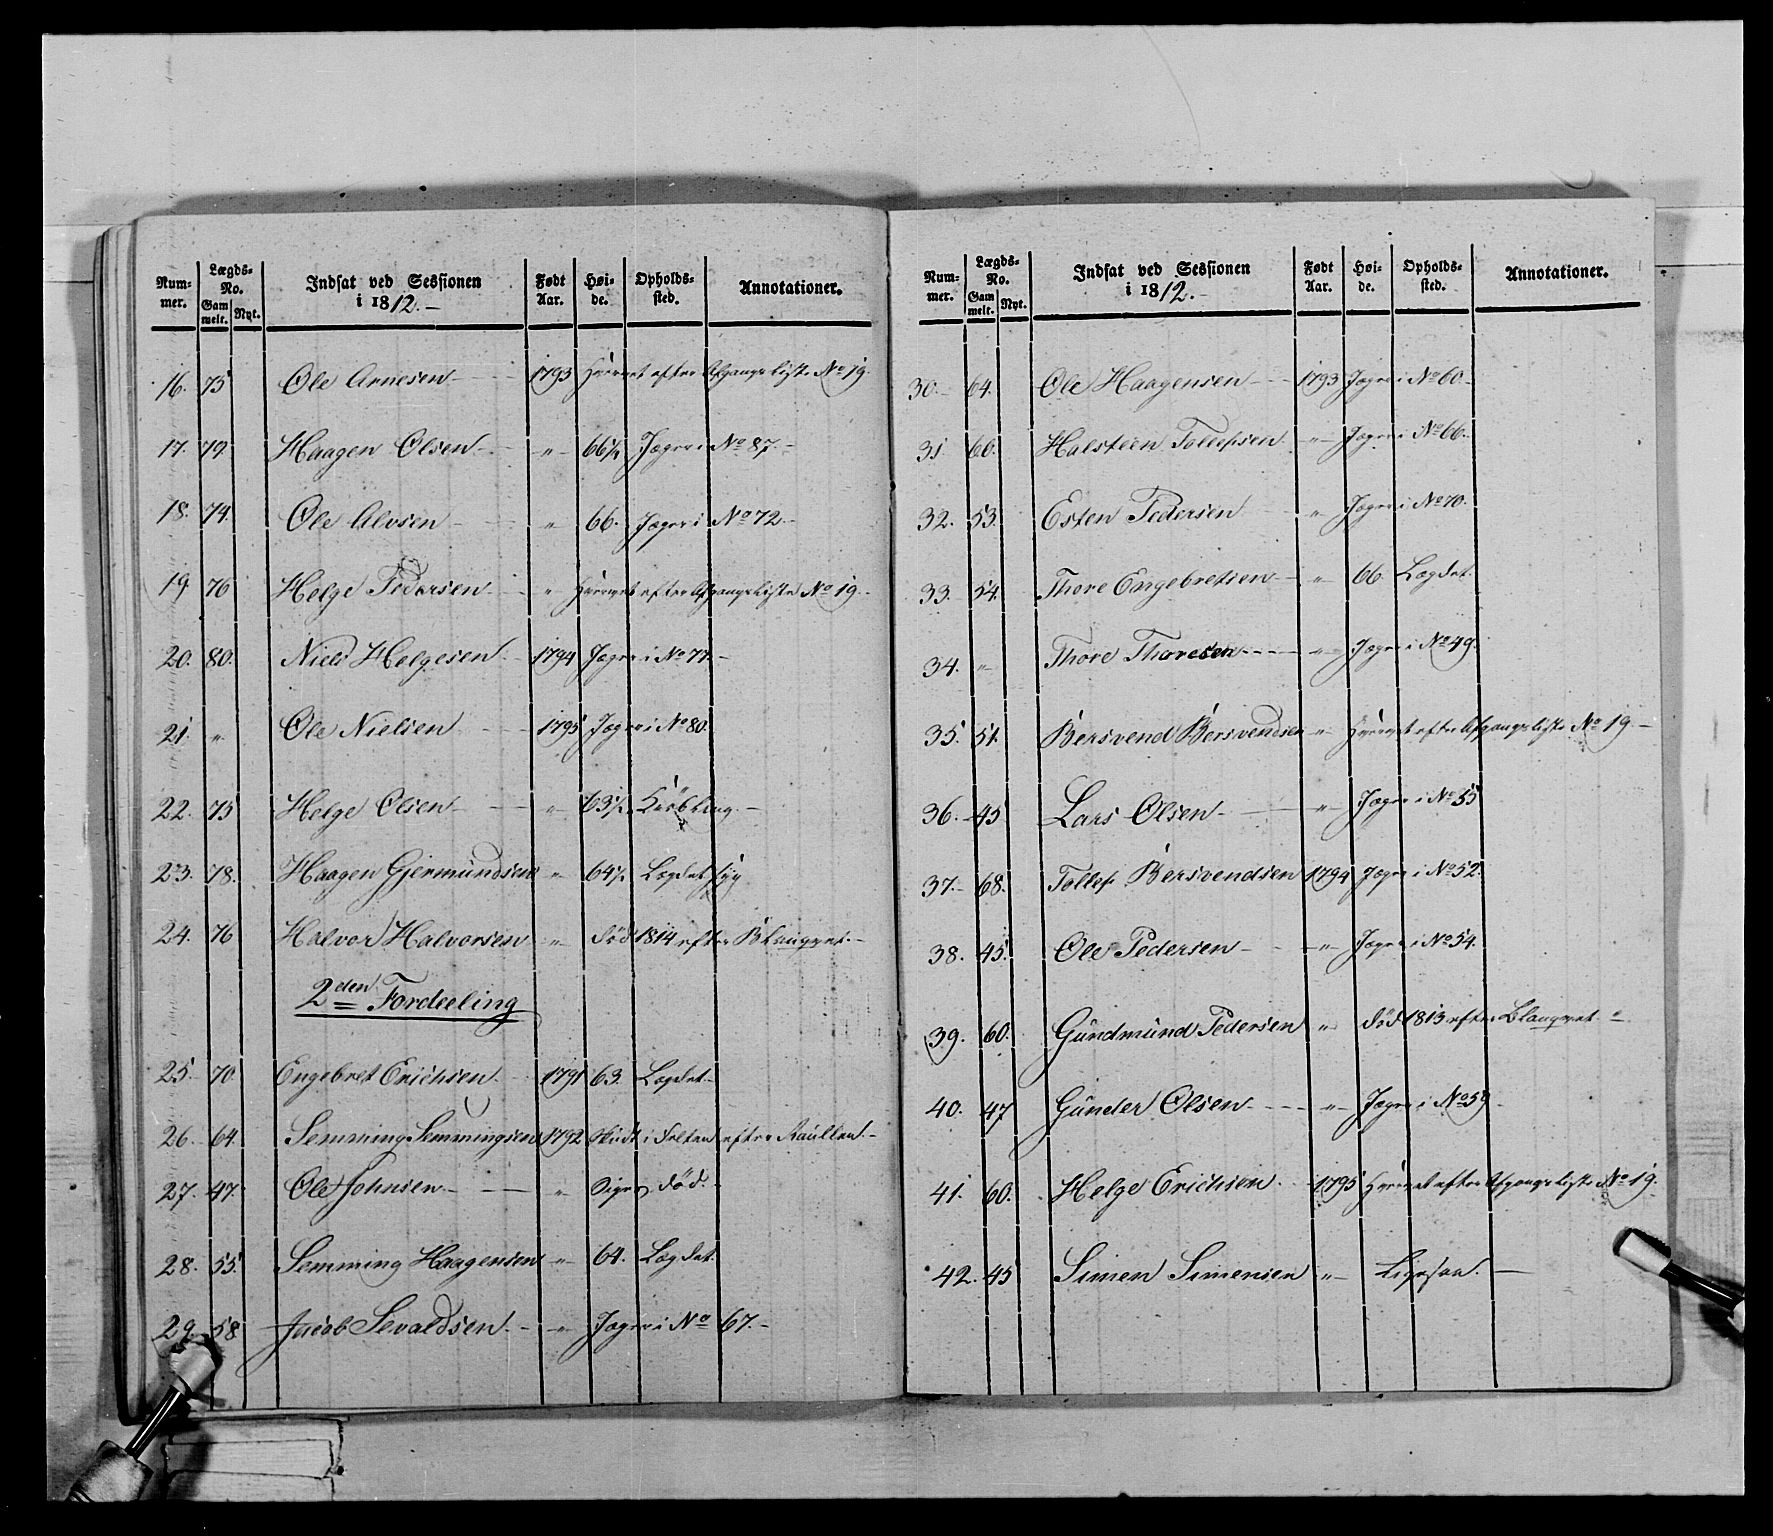 Num-
mer.
Lægds-
No.
Gam
melt.
Nyt.
Indsat ved Sessionen
i 1812.-
Født
Aar.
Høi-
de.
Opholds-
sted.
Annotationer.
16. 75 Ole Arnesen 1793 efter Afgangsliste No 19.
17. 79. Haagen Olsen " 66½ Jæger i No 87.-
18. 74. Ole Alvsen " 66. Jæger i No 72.-
19 76 Helge Pedersen " efter Afgangsliste No 19.-
20. 80. Niels Helgesen 1794 Jæger i No 77.-
21. " Ole Nielsen 1795 Jæger i No 80.
22. 75 Helge Olsen " 63½
23. 78. Haagen Gjermundsen " 64½ Lægdet syg
24. 76 Halvor Halvorsen " død 1814 efter
2den Fordeeling
25. 70. Engebret Erichsen. 1791 63. Lægdet.
26. 64. Semming Semmingsen 1792 i Felten efter Rullen.-
27. 47. Ole Johnsen " død.
28. 55. Semming Haagensen " 64. Lægdet.
29. 58 Jacob Sevaldsen.- " Jæger i No 67.-
Num-
mer.
Lægds-
No.
Gam
melt.
Nyt.
Indsat ved Sessionen
i 1812.-
Født
Aar.
Høi-
de.
Opholds-
sted.
Annotationer.
30. 64. Ole Haagensen 1793 Jæger i No 60.-
31 66. Halsteen Tollefsen " Jæger i No 66.
32. 53. Esten Pedersen " Jæger i No 70.
33. 54. Thore Engebretsen " 66. Lægdet.
34. " Thore Thoresen " Jæger i No 49.
35. 51. Bersvend Bersvendsen " efter Afgangsliste No 19-
36. 45 Lars Olsen " Jæger i No 55
37. 68. Tollef Bersvendsen 1794 Jæger i No 52.
38. 45. Ole Pedersen " Jæger i No 54.
39. 60. Gundmund Pedersen " død 1813 efter
40. 47 Gunder Olsen " Jæger i No 59
41. 60. Helge Erichsen 1795 efter Afgangsliste No 19.
42. 45 Simen Simensen "